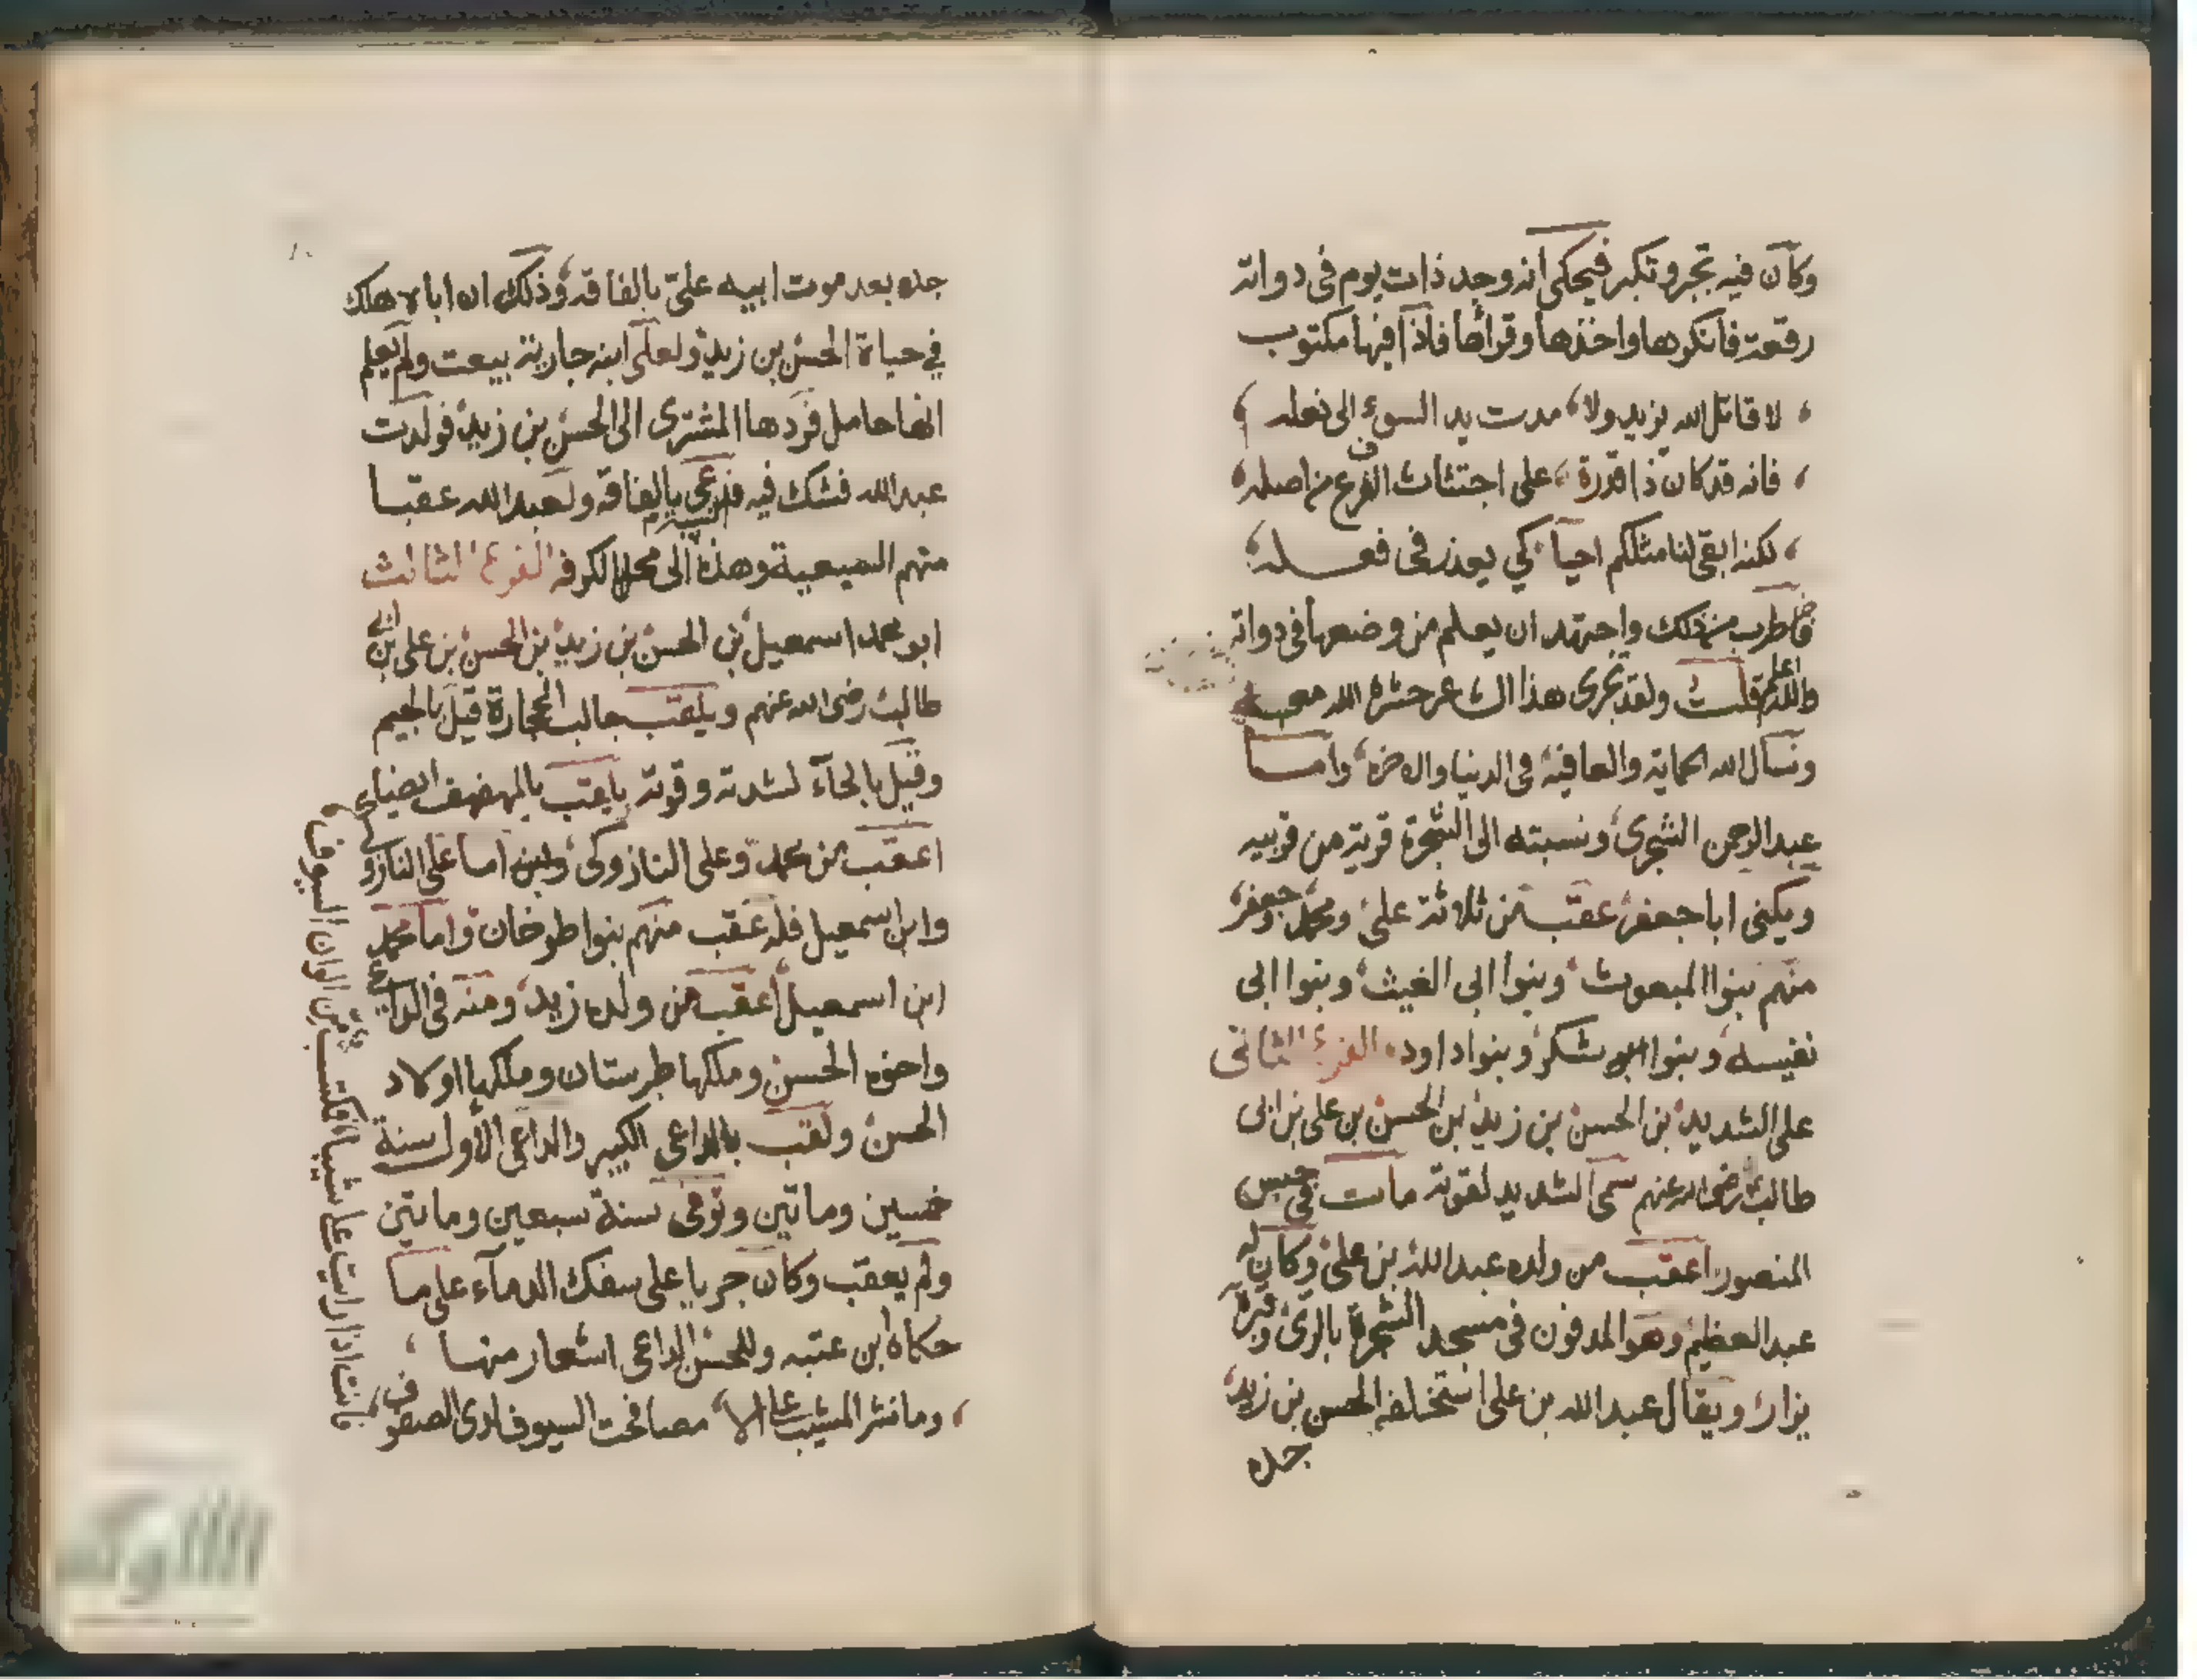 وكان فيه تجبر وتكبر فيحكى انه وجد ذات يوم فى دواته
رقعة فانكرها واخذها وقرأها فاذا فيها مكتوب
لا قاتل الله يزيد ولا مدت يد السوء الى نعله
فانه قد كان ذا قدرة على اجتثاث الفرع من اصله
لكنه ابقى لنا مثلكم احيا كي يعذر فى فعله
فاضطرب من ذلك واجتهد ان يعلم من وضعها فى دواته
والله اعلم قلت ولقد تجرى هذا الشاعر حشره الله معه
ونسأل الله الحماية والعافية فى الدنيا والاخرة واما
عبد الرحمن الشجرى ونسبته الى الشجرة قرية من قربيه
ويكنى ابا جعفر عقب من ثلاثة على ومحمد وجعفر
منهم بنوا المبعوث وبنوا ابى الغيث وبنوا ابى
نفيسه وبنوا ابى شكر وبنوا داود الفرع الثانى
على الشديد بن الحسن بن زيد بن الحسن بن على بن ابى
طالب رضى الله عنهم سمى الشديد لقوته مات فى حبس
المنصور اعقب من ولده عبد الله بن على وكان له
عبد العظيم وهو المدفون فى مسجد الشجرة بالرى وقبره
يزار ويقال عبد الله بن على استخلفه الحسن بن زيد
جده
جده بعد موت ابيه على بالفاقه وذلك ان اباه هلك
في حياة الحسن بن زيد ولعلى ابنه جارية بيعت ولم يعلم
انها حامل فردها المشترى الى الحسن بن زيد فولدت
عبد الله فشك فيه فدعى بالفاقه ولعبد الله عقبا
منهم السبعية وهذه الى الفرع الثالث
ابو محمد اسمعيل بن الحسن بن زيد بن الحسن بن على بن ابى
طالب رضى الله عنهم ويلقب جالب الحجارة قيل بالجيم
وقيل بالحآء لشدته وقوته يلقب بالمهفهف ايضا
اعقب من محمد وعلى النازوكى اما على النازوكى
وابن اسمعيل فله عقب منهم بنوا طوخان واما محمد
ابن اسمعيل اعقب من ولده زيد ومنه فى الداعى
واخوه الحسن وملكها طبرستان وملكها اولاد
الحسن ولقب بالداعى الكبير والداعى الاول سنة
خمسين وماتين وتوفى سنة سبعين وماتين
ولم يعقب وكان جريا على سفك الدمآء على ما
حكاه ابن عتبه وللحسن الداعى اشعار منها
وما نشر المشيب على الا مصافحت السيوف لدى الصفوف
فانت اذا رايت على شيبا فمكتسب من الوان السيوف